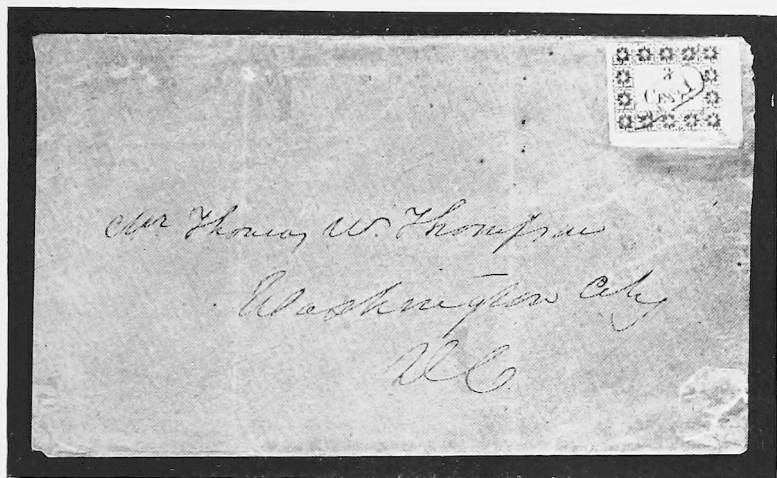 3
Cents
Mr Thomas W. Thompson
Washington City
D C